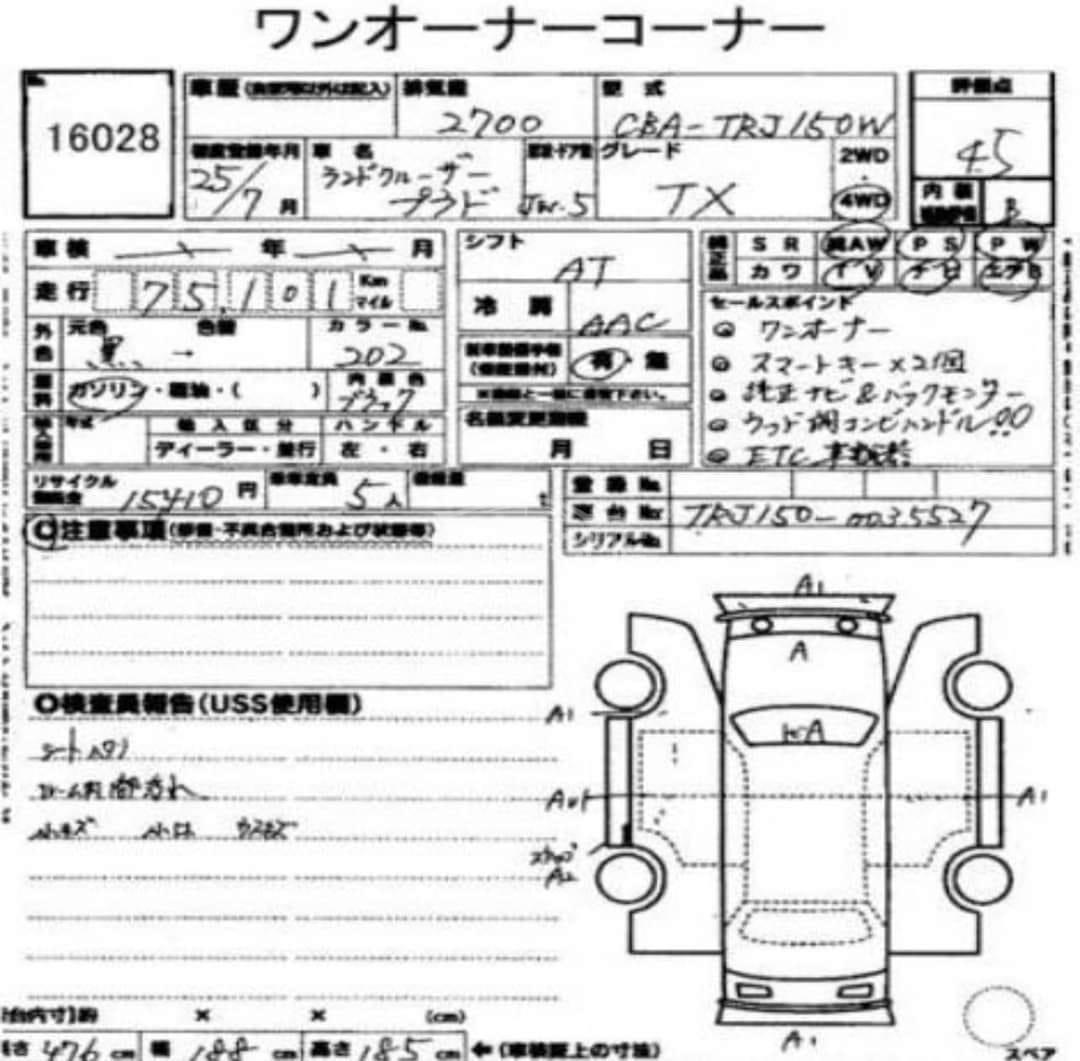 ワンオーナーコーナー
No.
16028
車歴(自家用以外は記入)
排気量
2700
型 式
CBA-TRJ150W
評価点
4.5
初度登録年月
25/7月
車 名
ランドクルーザー
プラド
ドア
5
グレード
TX
2WD
・
4WD
内装
B
車検 年 月
シフト
AT
SR AW PS PW
カワ TV ナビ エアB
走行 75,101 Km マイル
冷房
AAC
セールスポイント
ワンオーナー
スマートキー×2個
純正ナビ&バックモニター
ウッド調コンビハンドル!!
ETC
外色
元色
黒
→
色替
カラーNo.
202
有・無
燃料
ガソリン・軽油・( )
内装色
ブラック
名義変更期限
月 日
輸入車
年式
輸入区分
ディーラー・並行
ハンドル
左・右
リサイクル
預託金
15410円
乗車定員
5人
積載量
t
登録No.
車台No.
TRJ150-0035527
シリアルNo.
注意事項(修復・不具合箇所および状態等)
検査員報告(USS使用欄)
シートスワリ
ルーム内部汚れ
小キズ 小凹 ウスキズ
A1
A
A
A1
A1
ステップ
A2
A1
スペア
[荷台内寸]約 × × (cm)
長さ 476 cm 幅 188 cm 高さ 185 cm ←(車検証上の寸法)